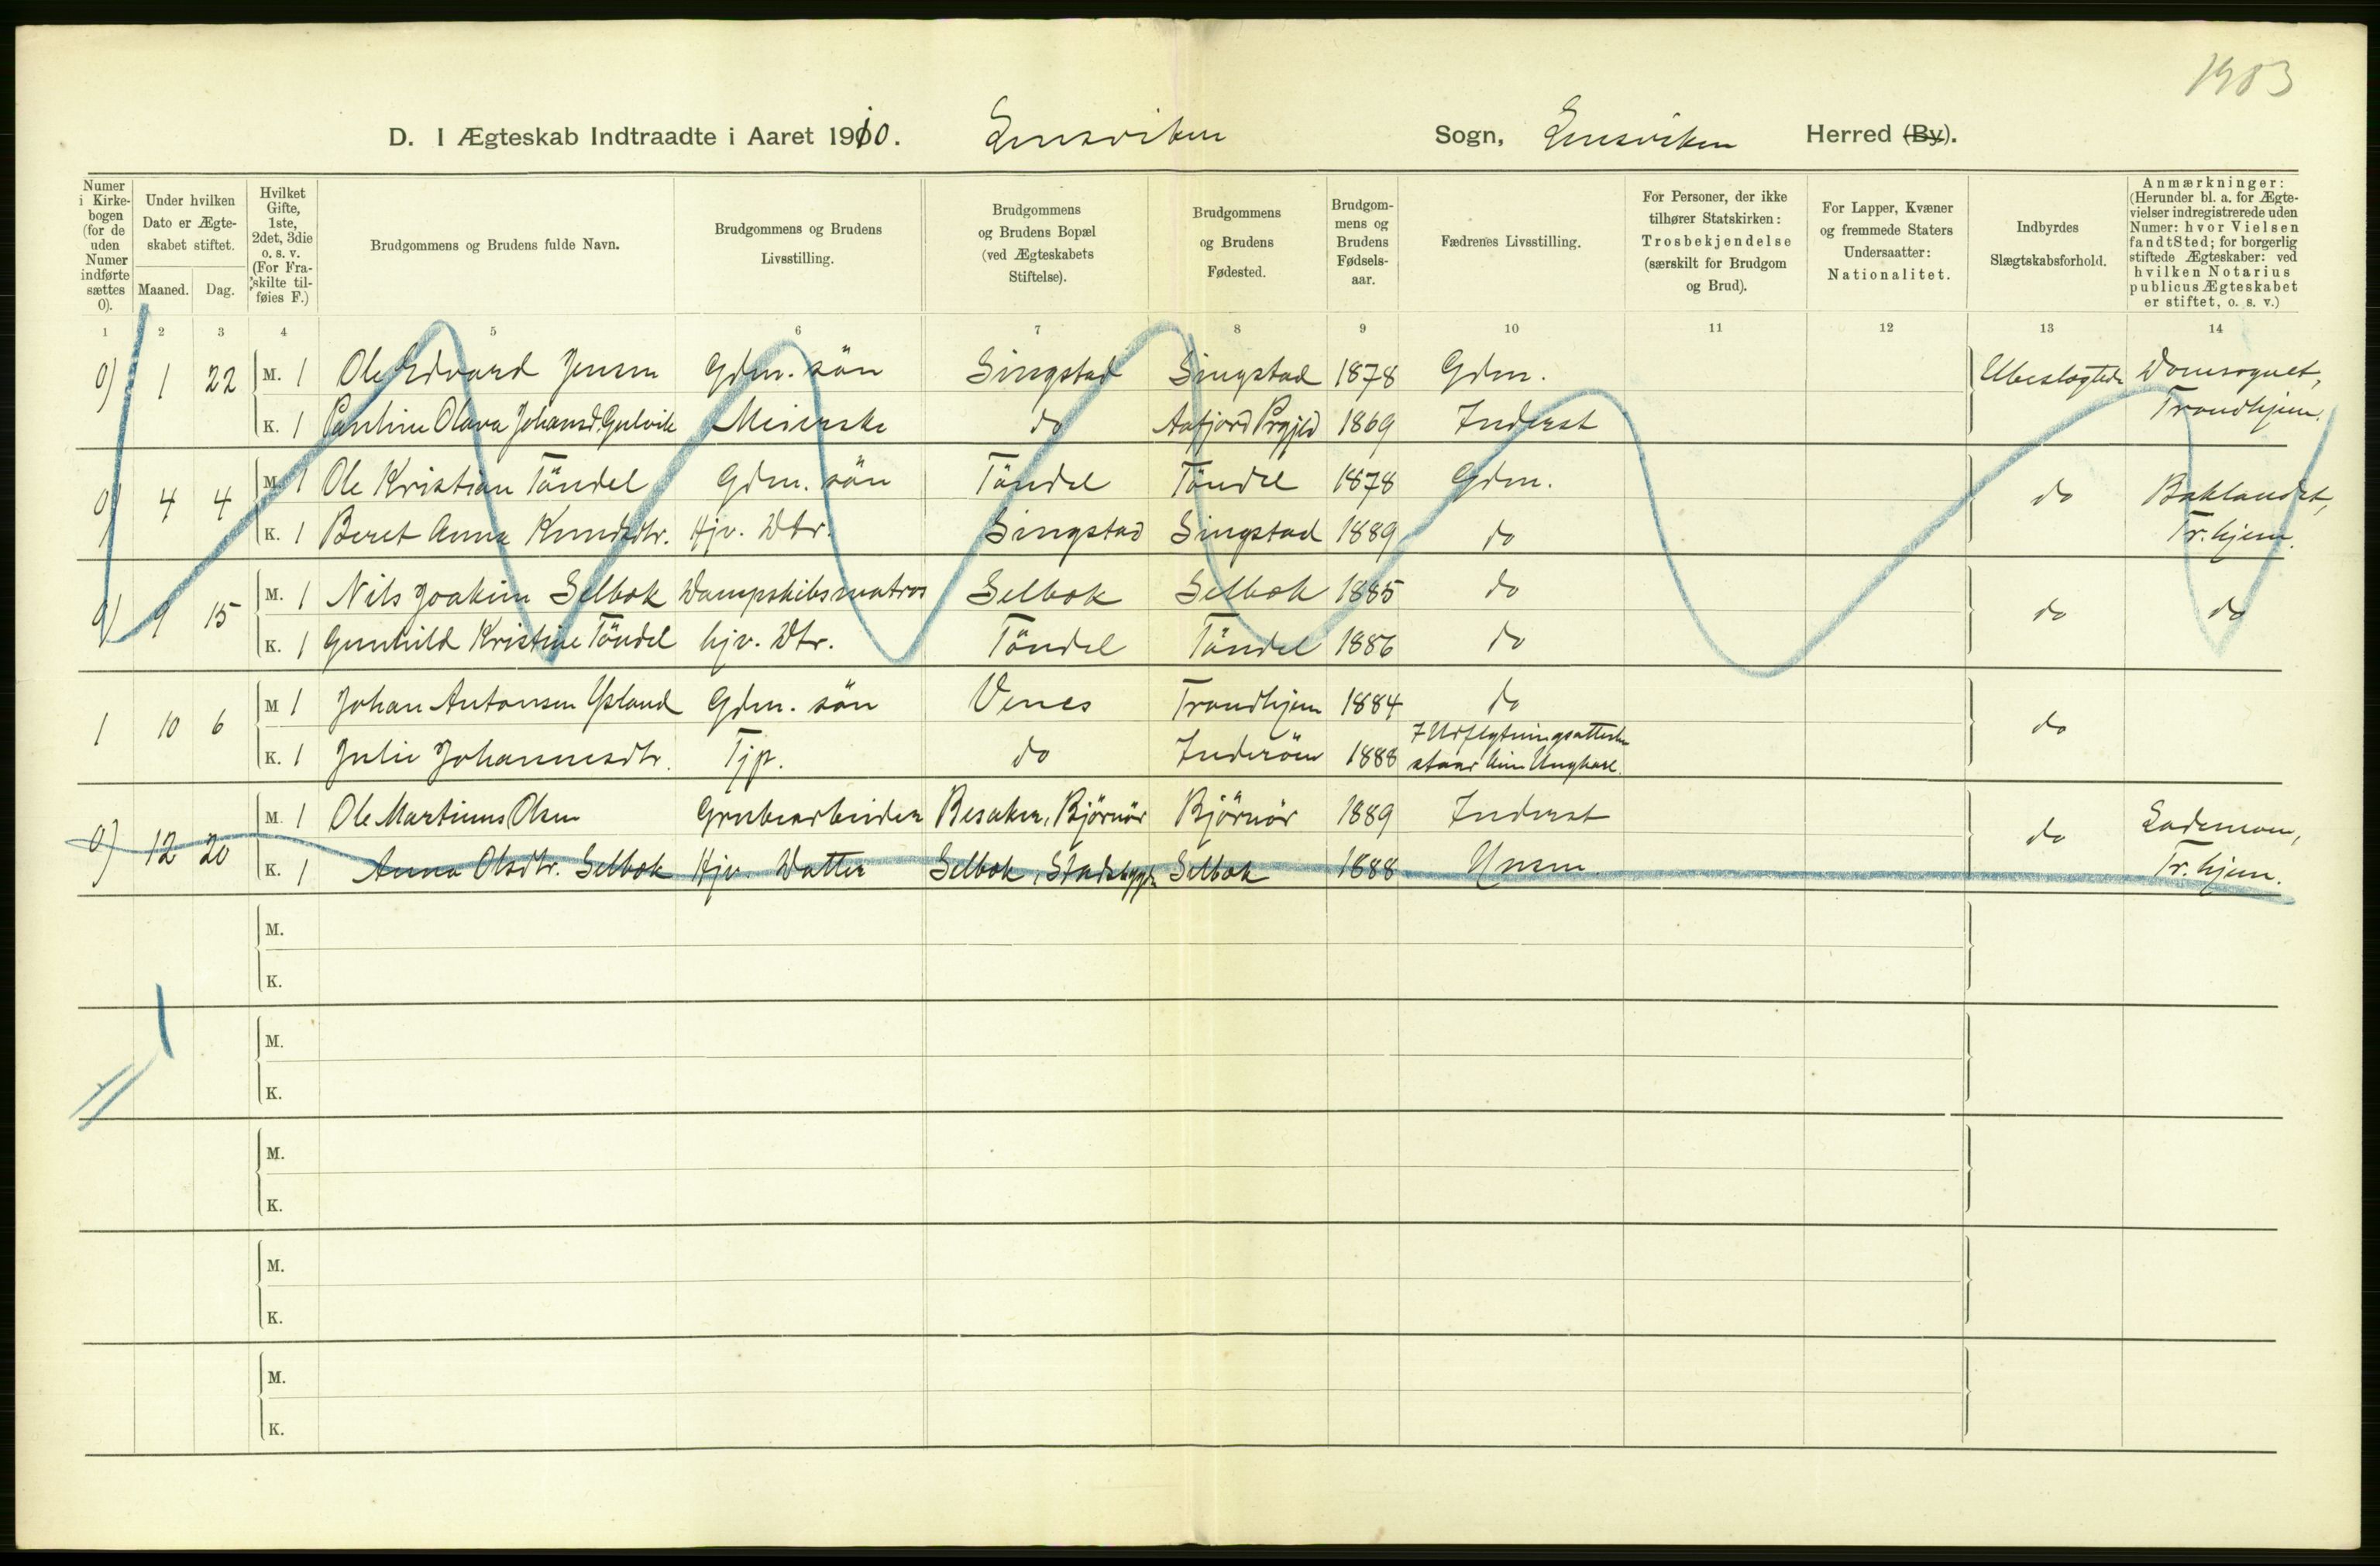 1983
D. I Ægteskab Indtraadte i Aaret 1910. Lensviken Sogn, Lensviken Herred (By).
Numer i Kirkebogen (for de uden Numer indførte sættes 0).
Under hvilken Dato er Ægteskabet stiftet.
Maaned. Dag.
Hvilket Gifte, 1ste, 2det, 3die o. s. v. (For Fraskilte tilføies F.)
Brudgommens og Brudens fulde Navn.
Brudgommens og Brudens Livsstilling.
Brudgommens og Brudens Bopæl (ved Ægteskabets Stiftelse).
Brudgommens og Brudens Fødested.
Brudgommens og Brudens Fødselsaar.
Fædrenes Livsstilling.
For Personer, der ikke tilhører Statskirken: Trosbekjendelse (særskilt for Brudgom og Brud).
For Lapper, Kvæner og fremmede Staters Undersaatter: Nationalitet.
Indbyrdes Slægtskabsforhold.
Anmærkninger: (Herunder bl. a. for Ægtevielser indregistrerede uden Numer: hvor Vielsen fandt Sted; for borgerlig stiftede Ægteskaber: ved hvilken Notarius publicus Ægteskabet er stiftet, o. s. v.)
1 2 3 4 5 6 7 8 9 10 11 12 13 14
0) 1 22 M. 1 Ole Edvard Jensen Gdm. sön Singstad Singstad 1878 Gdm. Ubeslægtede Domsognet,
K. 1 Pauline Olava Johansd. Gulvik Meierske do Aafjord Prgjld 1869 Inderst Trondhjem.
0) 4 4 M. 1 Ole Kristian Töndel Gdm. sön Töndel Töndel 1878 Gdm. do Baklandet,
K. 1 Beret Anna Knudsdtr. Hjv. Dtr. Singstad Singstad 1889 do Tr.hjem.
0) 9 15 M. 1 Nils Joakim Selbok Dampskibsmatros Selbok Selbok 1885 do do do
K. 1 Gunhild Kristine Töndel hjv. Dtr. Töndel Töndel 1886 do
1 10 6 M 1 Johan Antonsen Ysland Gdm. sön Venes Trondhjem 1884 do do
K. 1 Julie Johannesdtr. Tjp. do Inderöen 1888 I Udflytningsattesten
staar kun Ungkarl.
0) 12 20 M. 1 Ole Martinus Olsen Grubearbeider Besaker, Björnör Björnör 1889 Inderst do Lademoen,
K. 1 Anna Olsdtr. Selbok Hjv. Datter Selbok, Stadsbygden Selbok 1888 Husm. Tr.hjem.
M.
K.
M.
K.
M.
K.
M.
K.
M.
K.
1